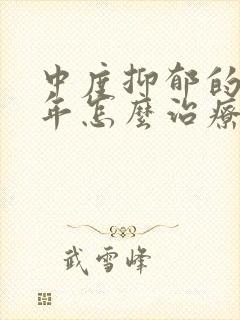 中度抑郁的
年怎麽治療
武雪峰